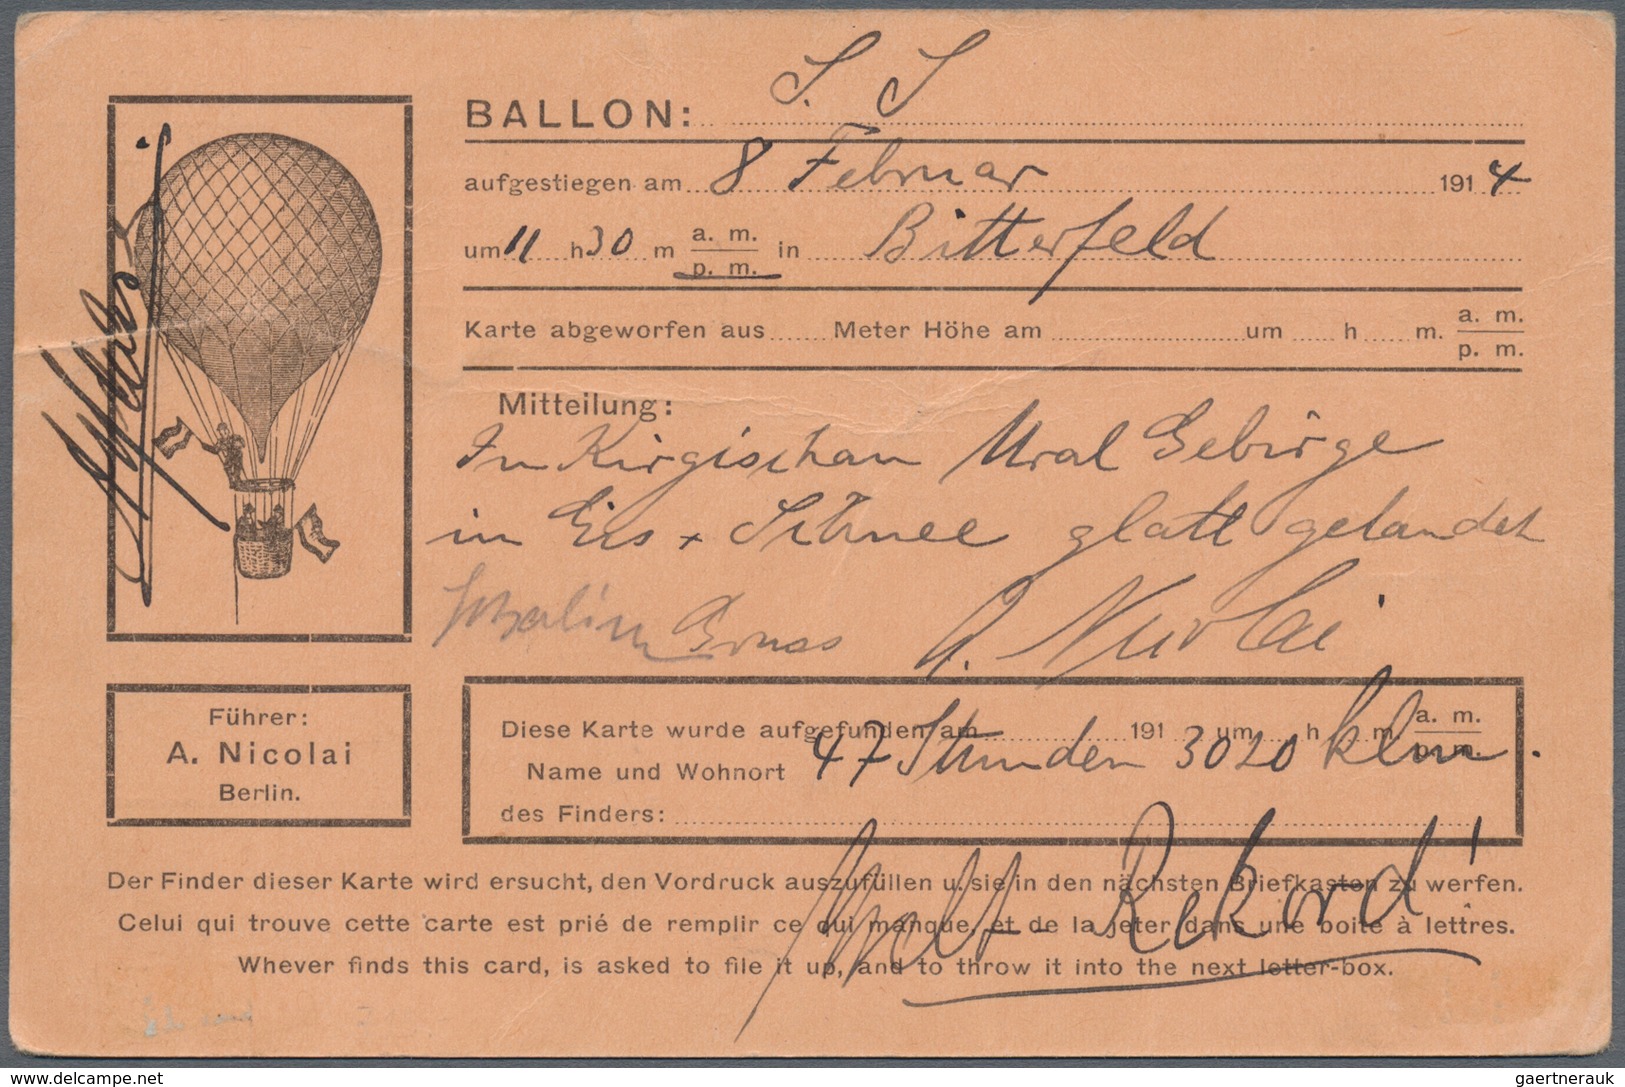 BALLON: S. S
aufgestiegen am 8 Februar 1914
um 11 h 30 m a. m. p. m. in Bitterfeld
Karte abgeworfen aus Meter Höhe am um h m. a. m. p. m.
Mitteilung:
In Kirgischan Ural Gebirge
in Eis + Schnee glatt gelandet
Gruss A. Nicolai
Führer:
A. Nicolai
Berlin.
Diese Karte wurde aufgefunden am 191 um h m a. m. p. m.
47 Stunden 3020 klm.
Name und Wohnort
des Finders:
Welt-Rekord!
Der Finder dieser Karte wird ersucht, den Vordruck auszufüllen u. sie in den nächsten Briefkasten zu werfen.
Celui qui trouve cette carte est prié de remplir ce qui manque, et de la jeter dans une boite à lettres.
Whever finds this card, is asked to file it up, and to throw it into the next letter-box.
www.delcampe.net
gaertnerauk